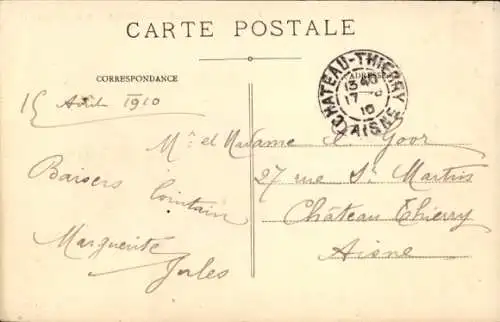 CARTE POSTALE
CORRESPONDANCE
ADRESSE
CHATEAU-THIERRY
13 40
17
10
AISNE
15 1910
Mr et Madame Goor
27 rue St Martin
Château Thierry
Aisne
Baisers lointain
Marguerite
Jules